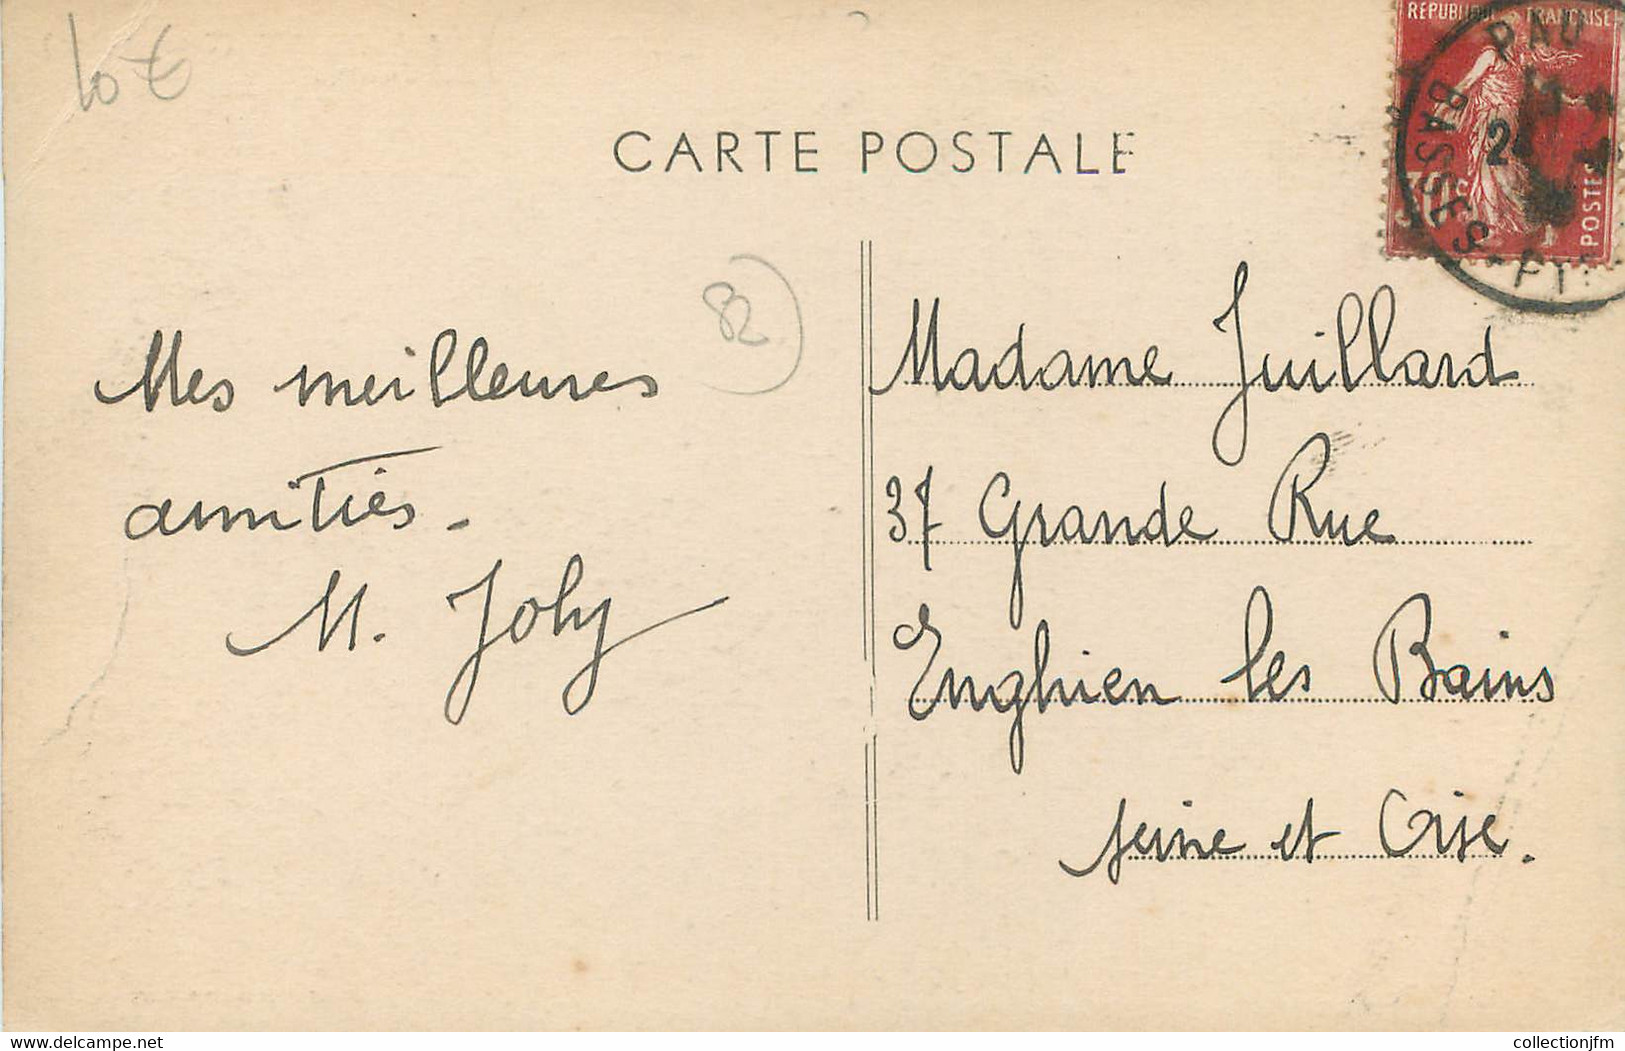 10€
CARTE POSTALE
REPUBLIQUE FRANCAISE
POSTES
PAU
24
BASSES - PYR
82
Mes meilleures
amitiés -
M. Joly
Madame Juillard
37 Grande Rue
Enghien les Bains
seine et Oise.
www.delcampe.net
collectionjfm